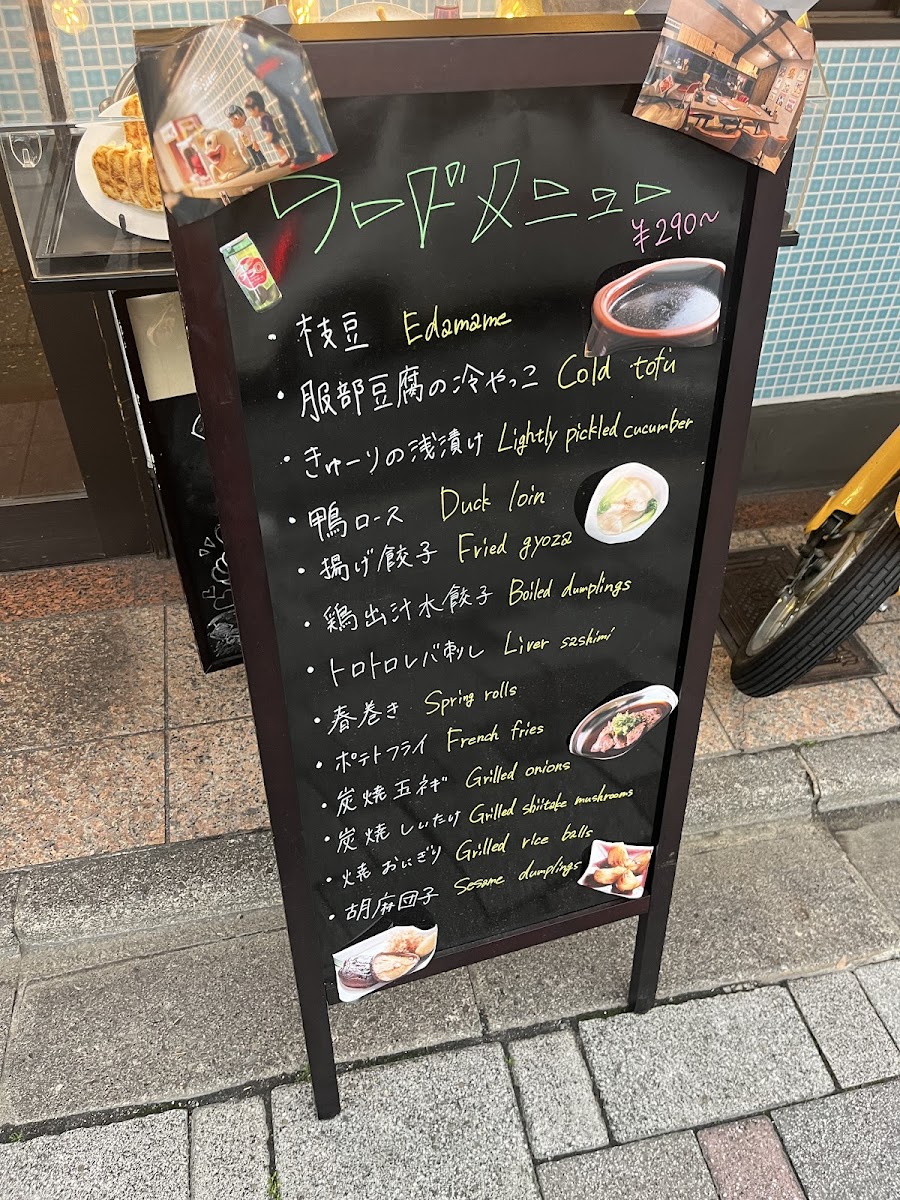 フードメニュー
¥290～
・枝豆 Edamame
・服部豆腐の冷やっこ Cold tofu
・きゅーりの浅漬け Lightly pickled cucumber
・鴨ロース Duck loin
・揚げ餃子 Fried gyoza
・鶏出汁水餃子 Boiled dumplings
・トロトロレバ刺し Liver sashimi
・春巻き Spring rolls
・ポテトフライ French fries
・炭焼玉ネギ Grilled onions
・炭焼しいたけ Grilled shiitake mushrooms
・焼おにぎり Grilled rice balls
・胡麻団子 Sesame dumplings